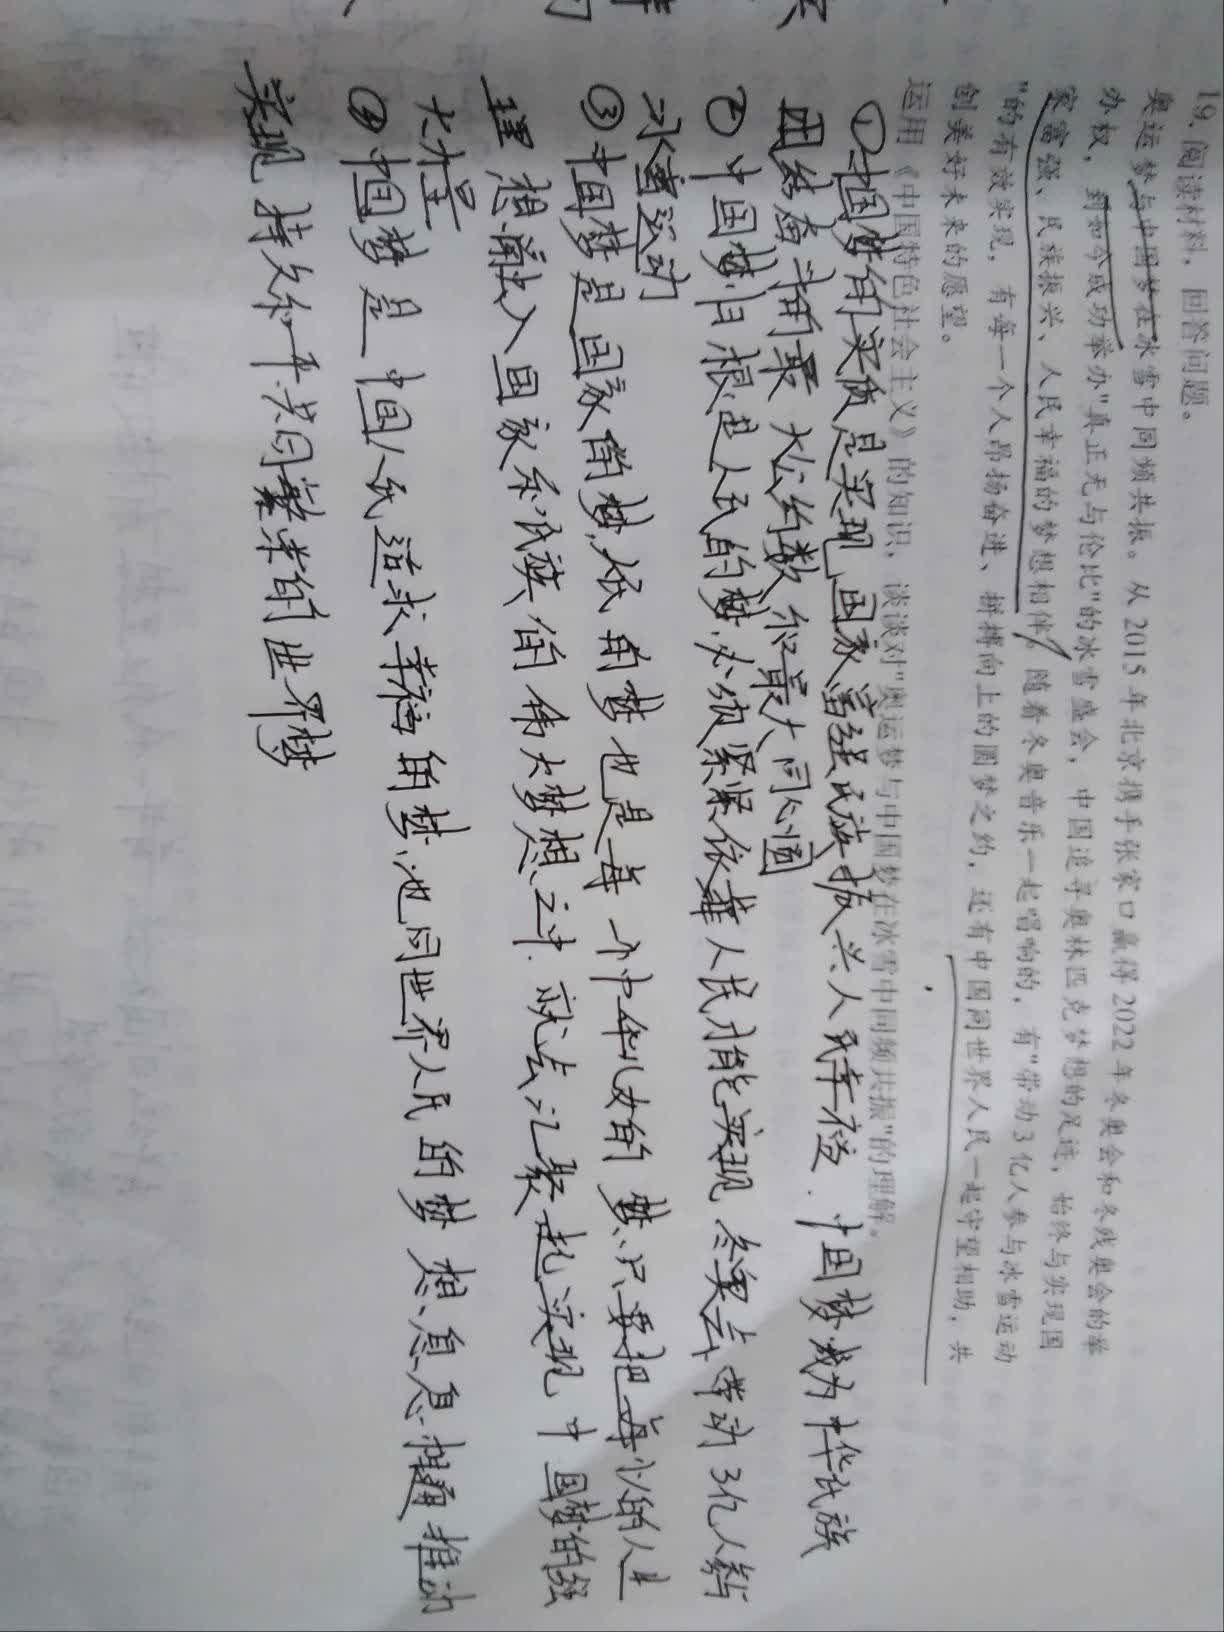 19. 阅读材料，回答问题。
奥运梦与中国梦在冰雪中同频共振。从2015年北京携手张家口赢得2022年冬奥会和冬残奥会的举
办权，到如今成功举办"真正无与伦比"的冰雪盛会，中国追寻奥林匹克梦想的足迹，始终与实现国
家富强、民族振兴、人民幸福的梦想相伴。随着冬奥音乐一起唱响的，有"带动3亿人参与冰雪运动
"的有效实现，有每一个人昂扬奋进、拼搏向上的圆梦之约，还有中国同世界人民一起守望相助，共
创美好未来的愿望。
运用《中国特色社会主义》的知识，谈谈对"奥运梦与中国梦在冰雪中同频共振"的理解。
①中国梦的实质是实现国家富强民族振兴、人民幸福．中国梦成为中华民族
团结奋斗的最大公约数和最大同心圆
②中国梦归根是人民的梦，必须紧紧依靠人民才能实现，冬奥会带动3亿人参与
冰雪运动
③中国梦是国家的梦，民族的梦也是每个中华儿女的梦，只要把每个人的人生
理想融入国家和民族的伟大梦想之中，就会汇聚起实现中国梦的强
大力量
④中国梦是中国人民追求幸福的梦，也同世界人民的梦想息息相通推动
实现持久和平共同繁荣的世界梦